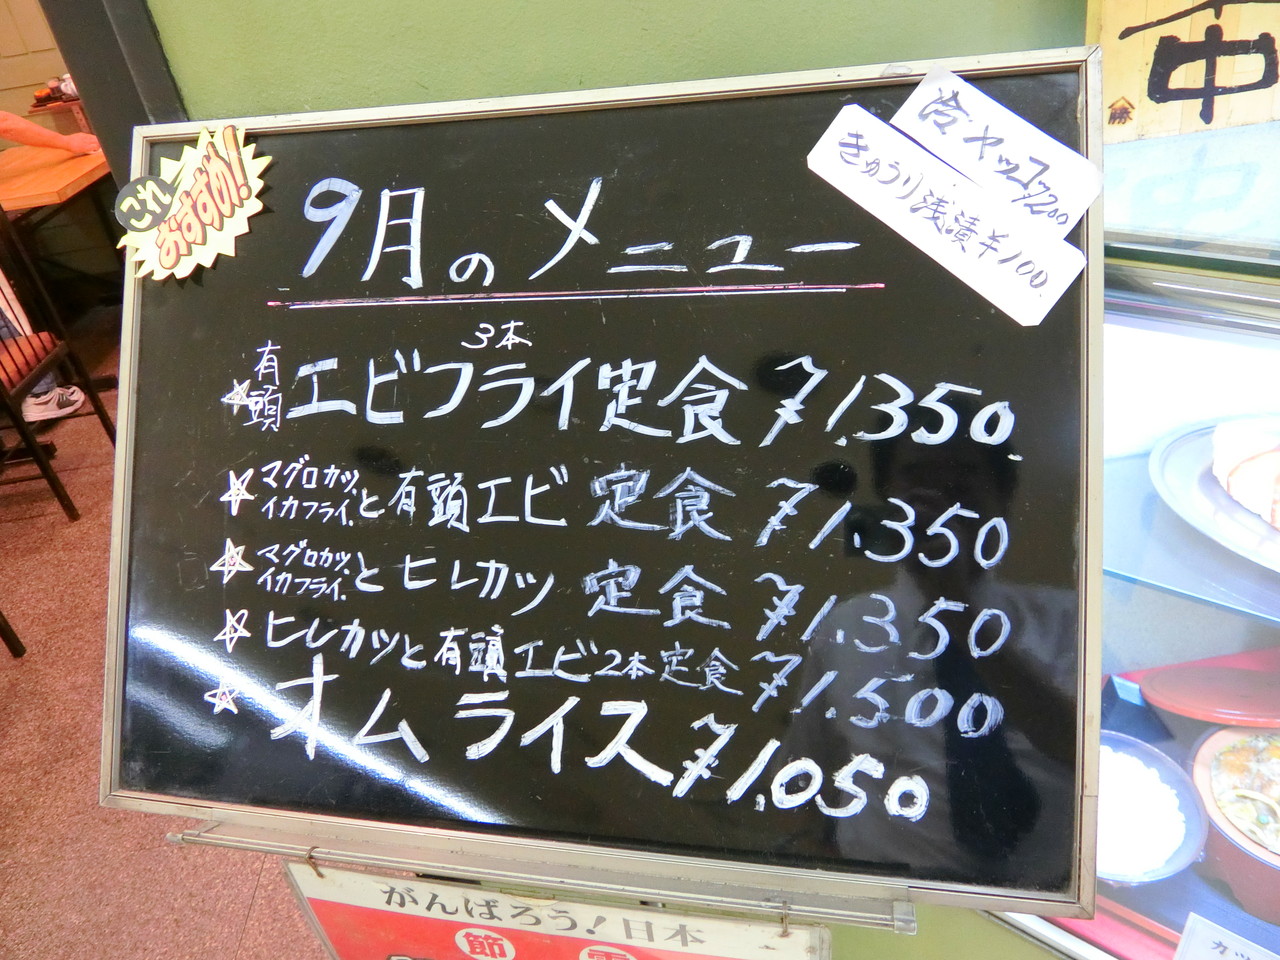 これ
おすすめ!
冷ヤッコ¥200
きゅうり浅漬¥100
9月のメニュー
3本
☆有頭エビフライ定食 ¥1.350
☆マグロカツ、イカフライ、と有頭エビ定食 ¥1.350
☆マグロカツ、イカフライ、とヒレカツ定食 ¥1.350
☆ヒレカツと有頭エビ2本定食 ¥1.500
☆オムライス ¥1.050
がんばろう!日本
節
中
勝